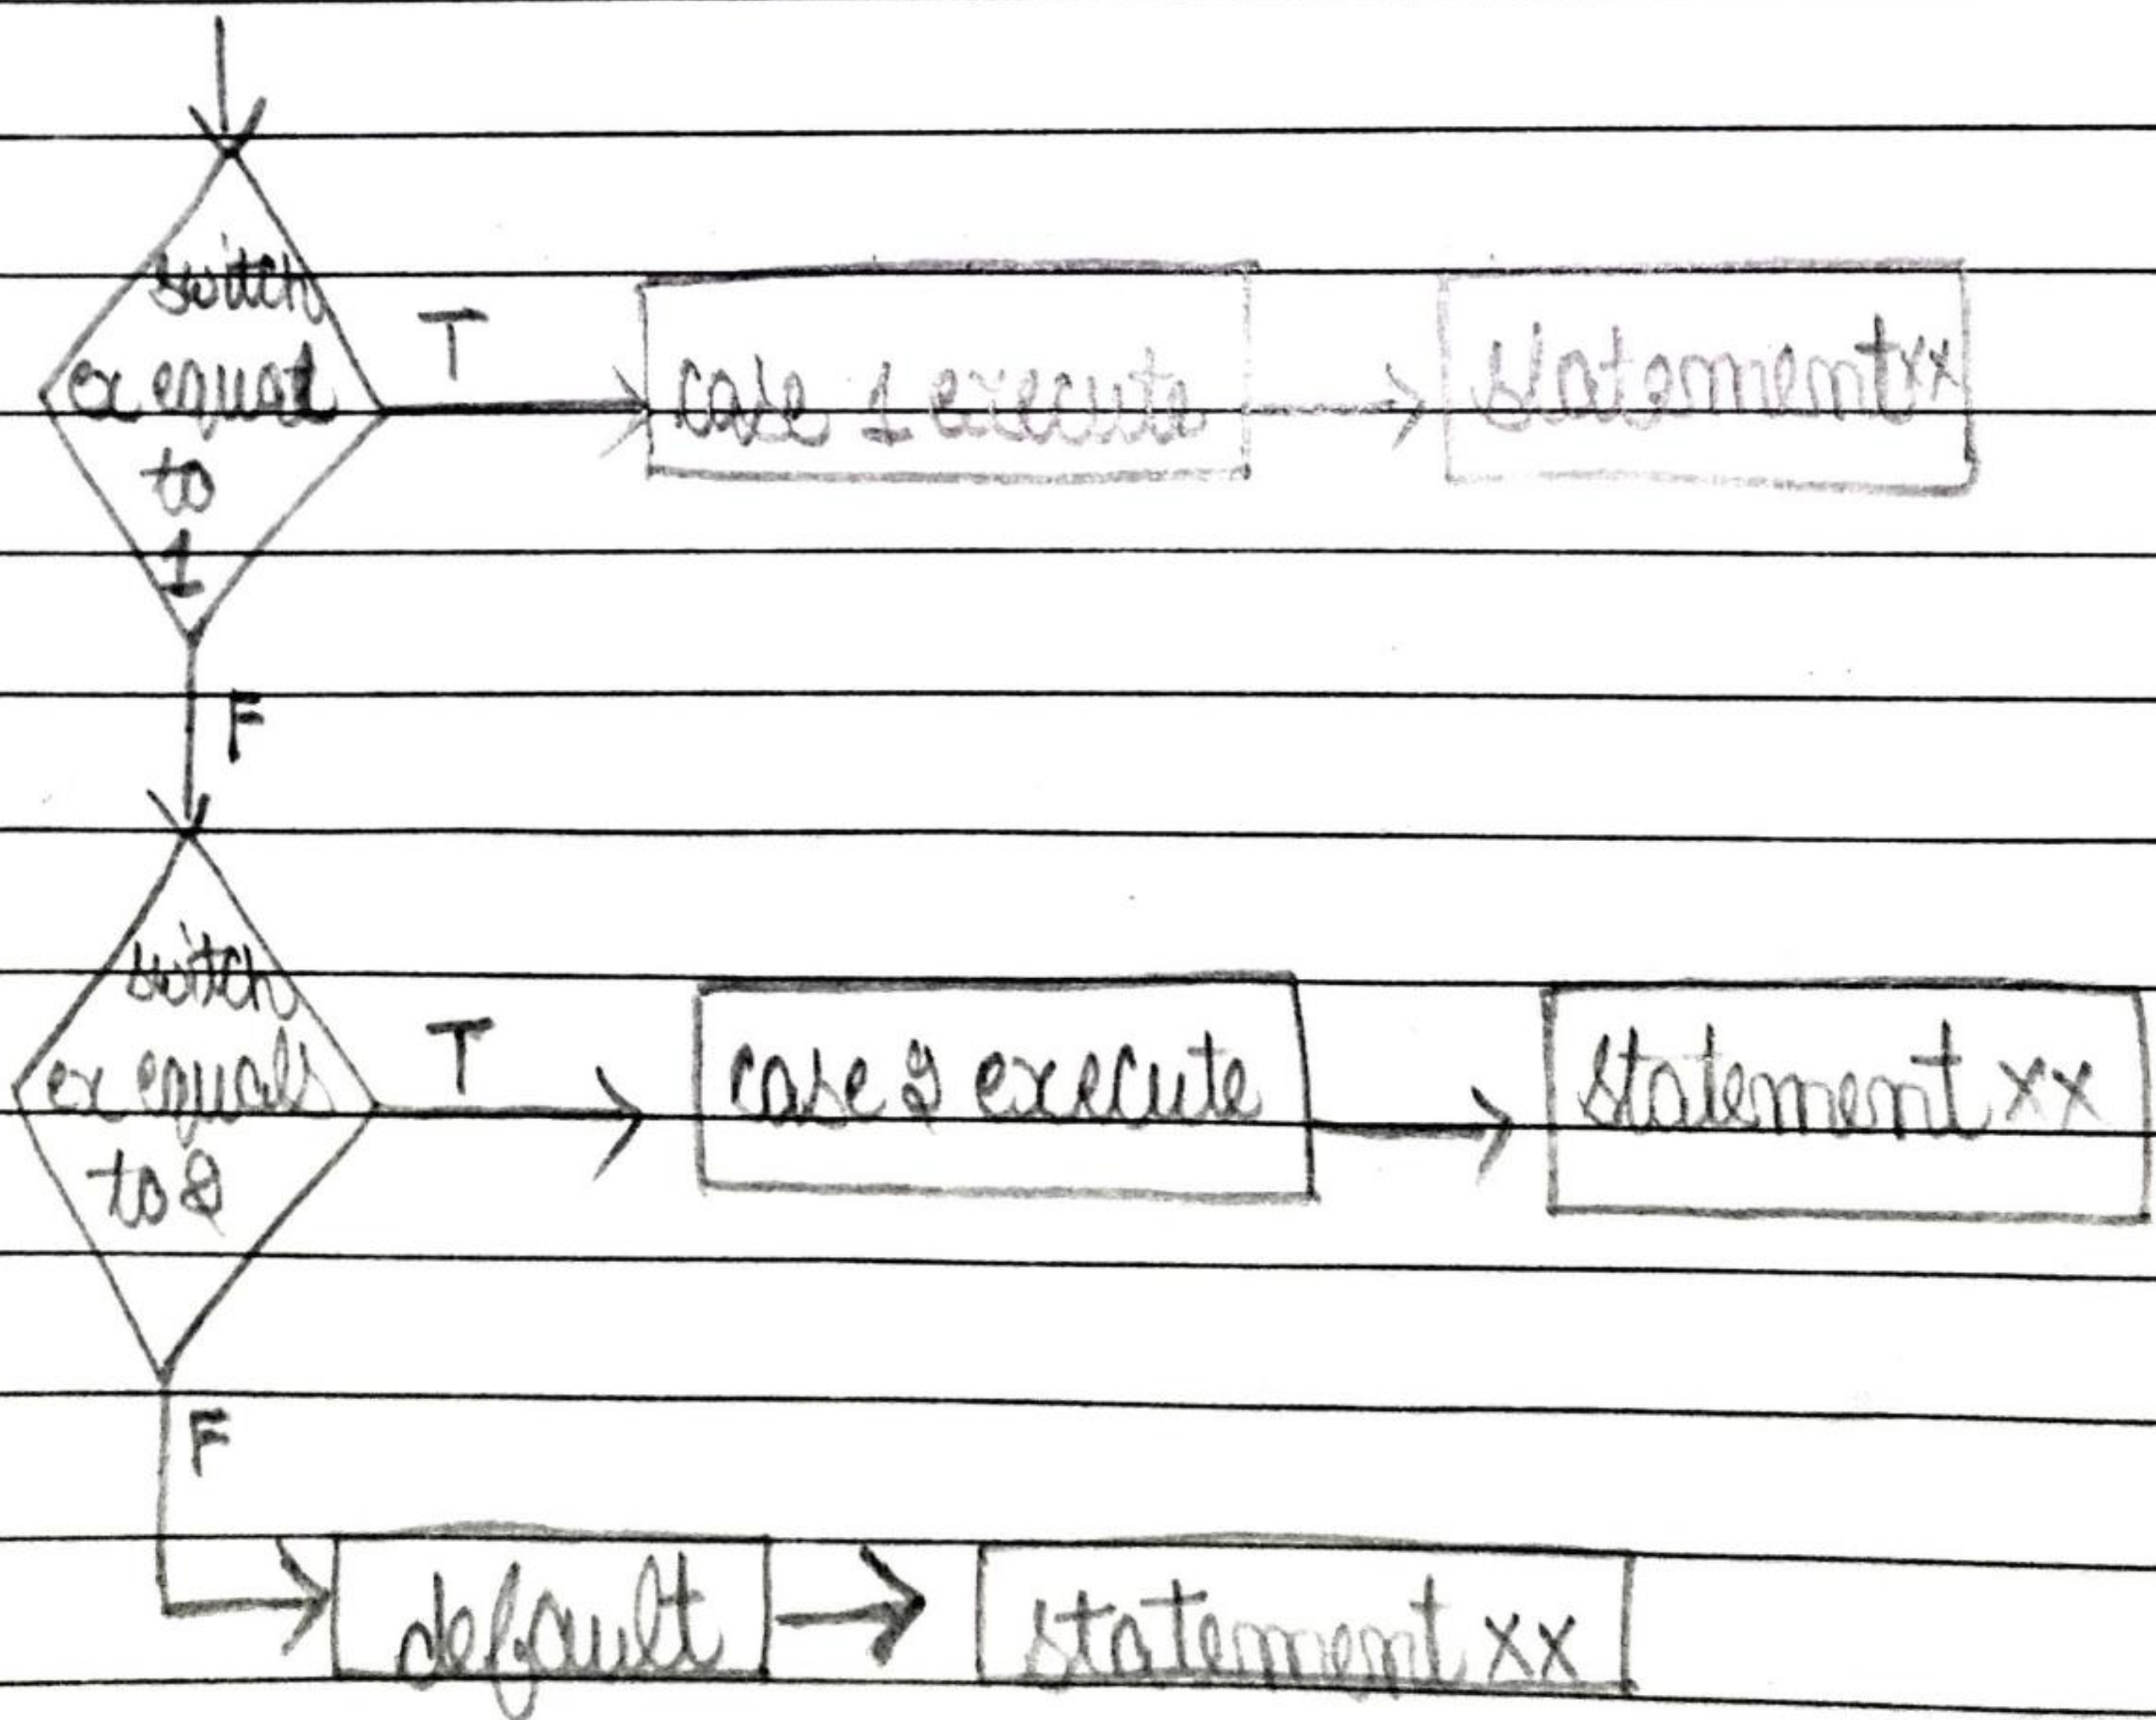 switch
ex equal
to
1
T
case 1 execute
statement xx
F
switch
ex equals
to 2
T
case 2 execute
statement xx
F
default
statement xx